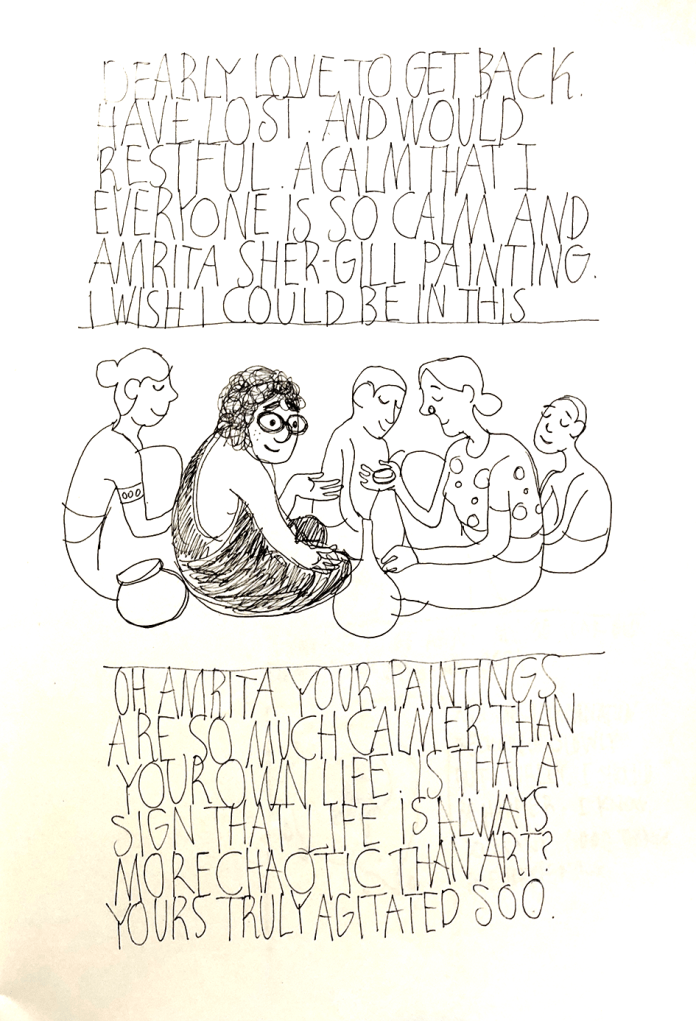 I WISH I COULD BE IN THIS
AMRITA SHER-GILL PAINTING.
EVERYONE IS SO CALM AND
RESTFUL. A CALM THAT I
HAVE LOST. AND WOULD
DEARLY LOVE TO GET BACK.
OH AMRITA YOUR PAINTINGS
ARE SO MUCH CALMER THAN
YOUR OWN LIFE. IS THAT A
SIGN THAT LIFE IS ALWAYS
MORE CHAOTIC THAN ART?
YOURS TRULY AGITATED SOO.